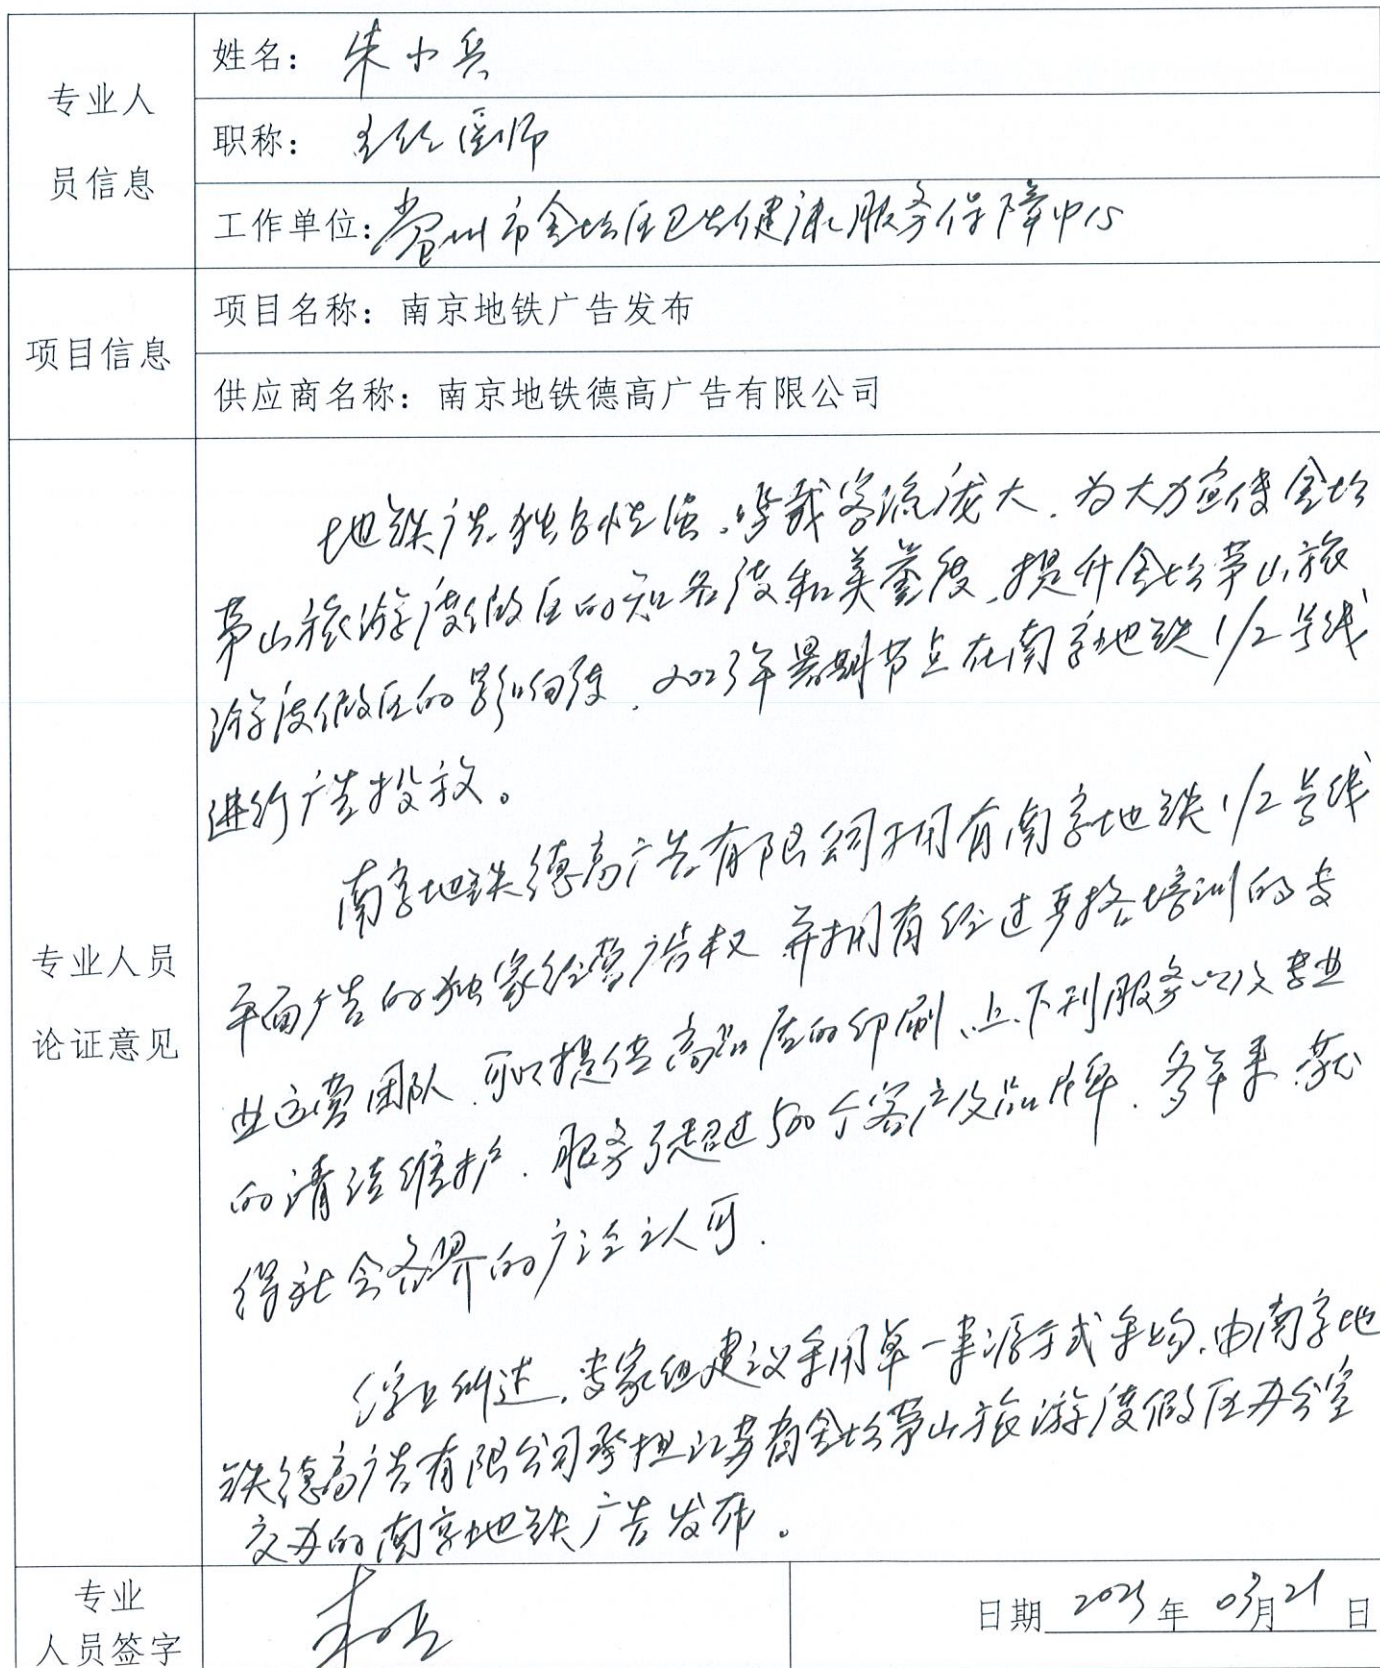 专业人
员信息
姓名：朱小兵
职称：主任医师
工作单位：常州市金坛区卫生健康服务保障中心
项目信息
项目名称：南京地铁广告发布
供应商名称：南京地铁德高广告有限公司
专业人员
论证意见
地铁广告独占性强，承载客流庞大，为大力宣传金坛
茅山旅游度假区的知名度和美誉度，提升金坛茅山旅
游度假区的影响度，2023年暑期节点在南京地铁1/2号线
进行广告投放。
南京地铁德高广告有限公司拥有南京地铁1/2号线
平面广告的独家经营广告权 并拥有经过严格培训的专
业运营团队，可以提供高品质的印刷、上、下刊服务以及专业
的清洁维护，服务了超过500个客户及品牌，多年来，获
得社会各界的广泛认可.
综上所述，专家组建议采用单一来源方式采购，由南京地
铁德高广告有限公司承担江苏省金坛茅山旅游度假区办公室
交办的南京地铁广告发布。
专业
人员签字
朱小兵
日期 2023 年 03月 21 日